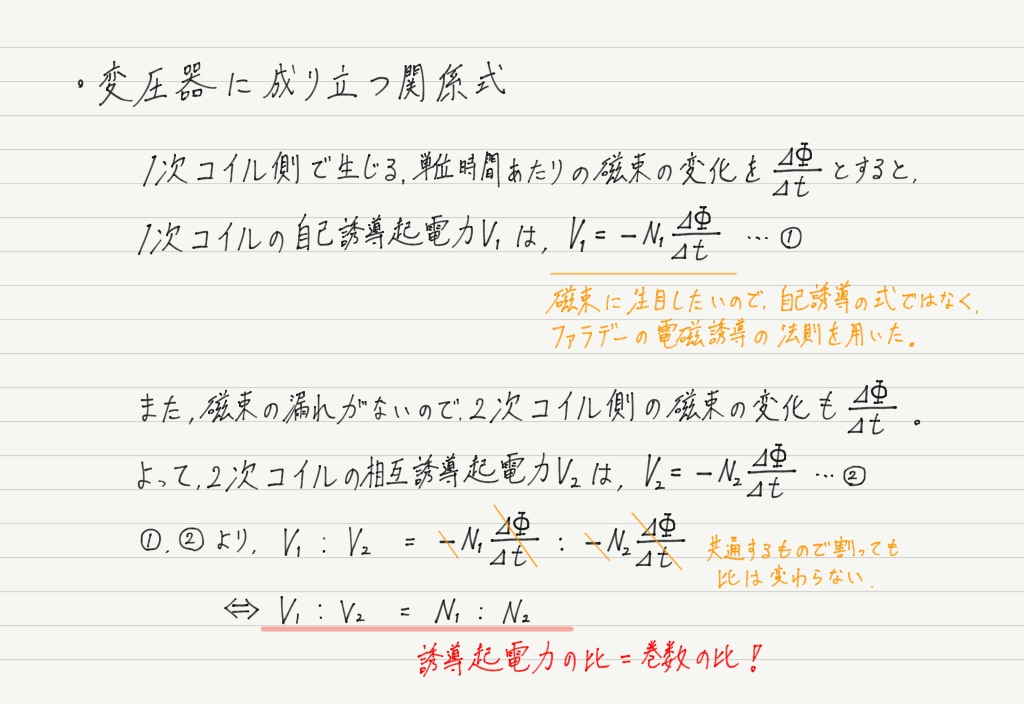 ・変圧器に成り立つ関係式
1次コイル側で生じる、単位時間あたりの磁束の変化を ΔΦ/Δt とすると、
1次コイルの自己誘導起電力V₁は、V₁ = −N₁ ΔΦ/Δt … ①
磁束に注目したいので、自己誘導の式ではなく、
ファラデーの電磁誘導の法則を用いた。
また、磁束の漏れがないので、2次コイル側の磁束の変化も ΔΦ/Δt 。
よって、2次コイルの相互誘導起電力V₂は、V₂ = −N₂ ΔΦ/Δt … ②
①、②より、V₁ : V₂ = −N₁ ΔΦ/Δt : −N₂ ΔΦ/Δt
共通するもので割っても
比は変わらない.
⇔ V₁ : V₂ = N₁ : N₂
誘導起電力の比 = 巻数の比!